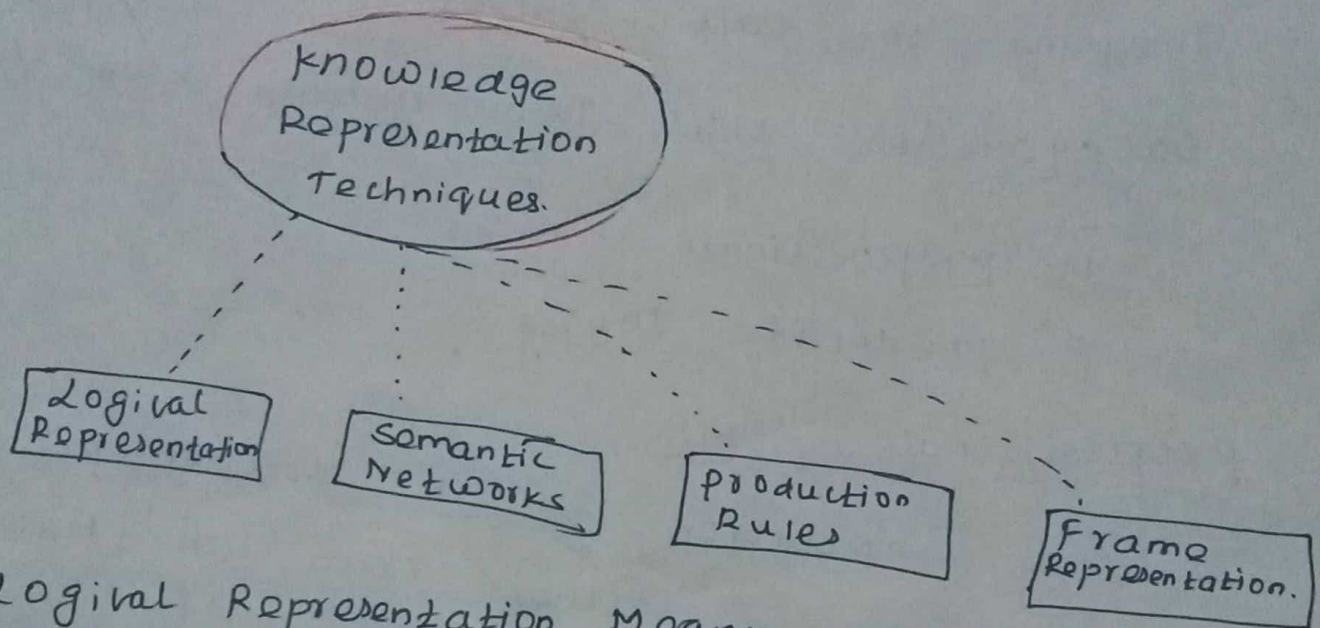 Knowledge
Representation
Techniques.
Logival
Representation
Semantic
Networks
Production
Rules
Frame
Representation.
Logival Representation